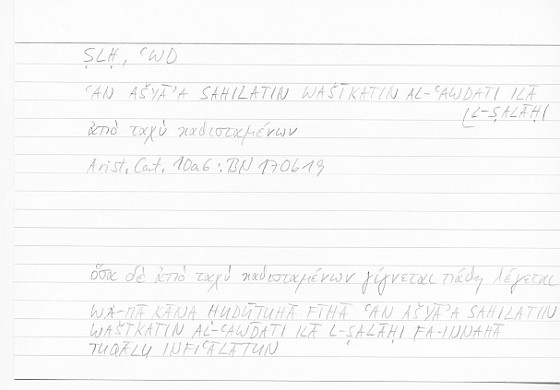 ṢLḤ, ʿWD
ʿAN AŠYĀʾA SAHILATIN WAŠĪKATIN AL-ʿAWDATI ILĀ
L-ṢALĀḤI
ἀπὸ ταχὺ καθισταμένων
Arist. Cat. 10a6 : BN 170b19
ὅσα δὲ ἀπὸ ταχὺ καθισταμένων γίγνεται πάθη λέγεται
WA-MĀ KĀNA ḤUDŪṮUHĀ FĪHĀ ʿAN AŠYĀʾA SAHILATIN
WAŠĪKATIN AL-ʿAWDATI ILĀ L-ṢALĀḤI FA-INNAHĀ
TUQĀLU INFIʿĀLATUN